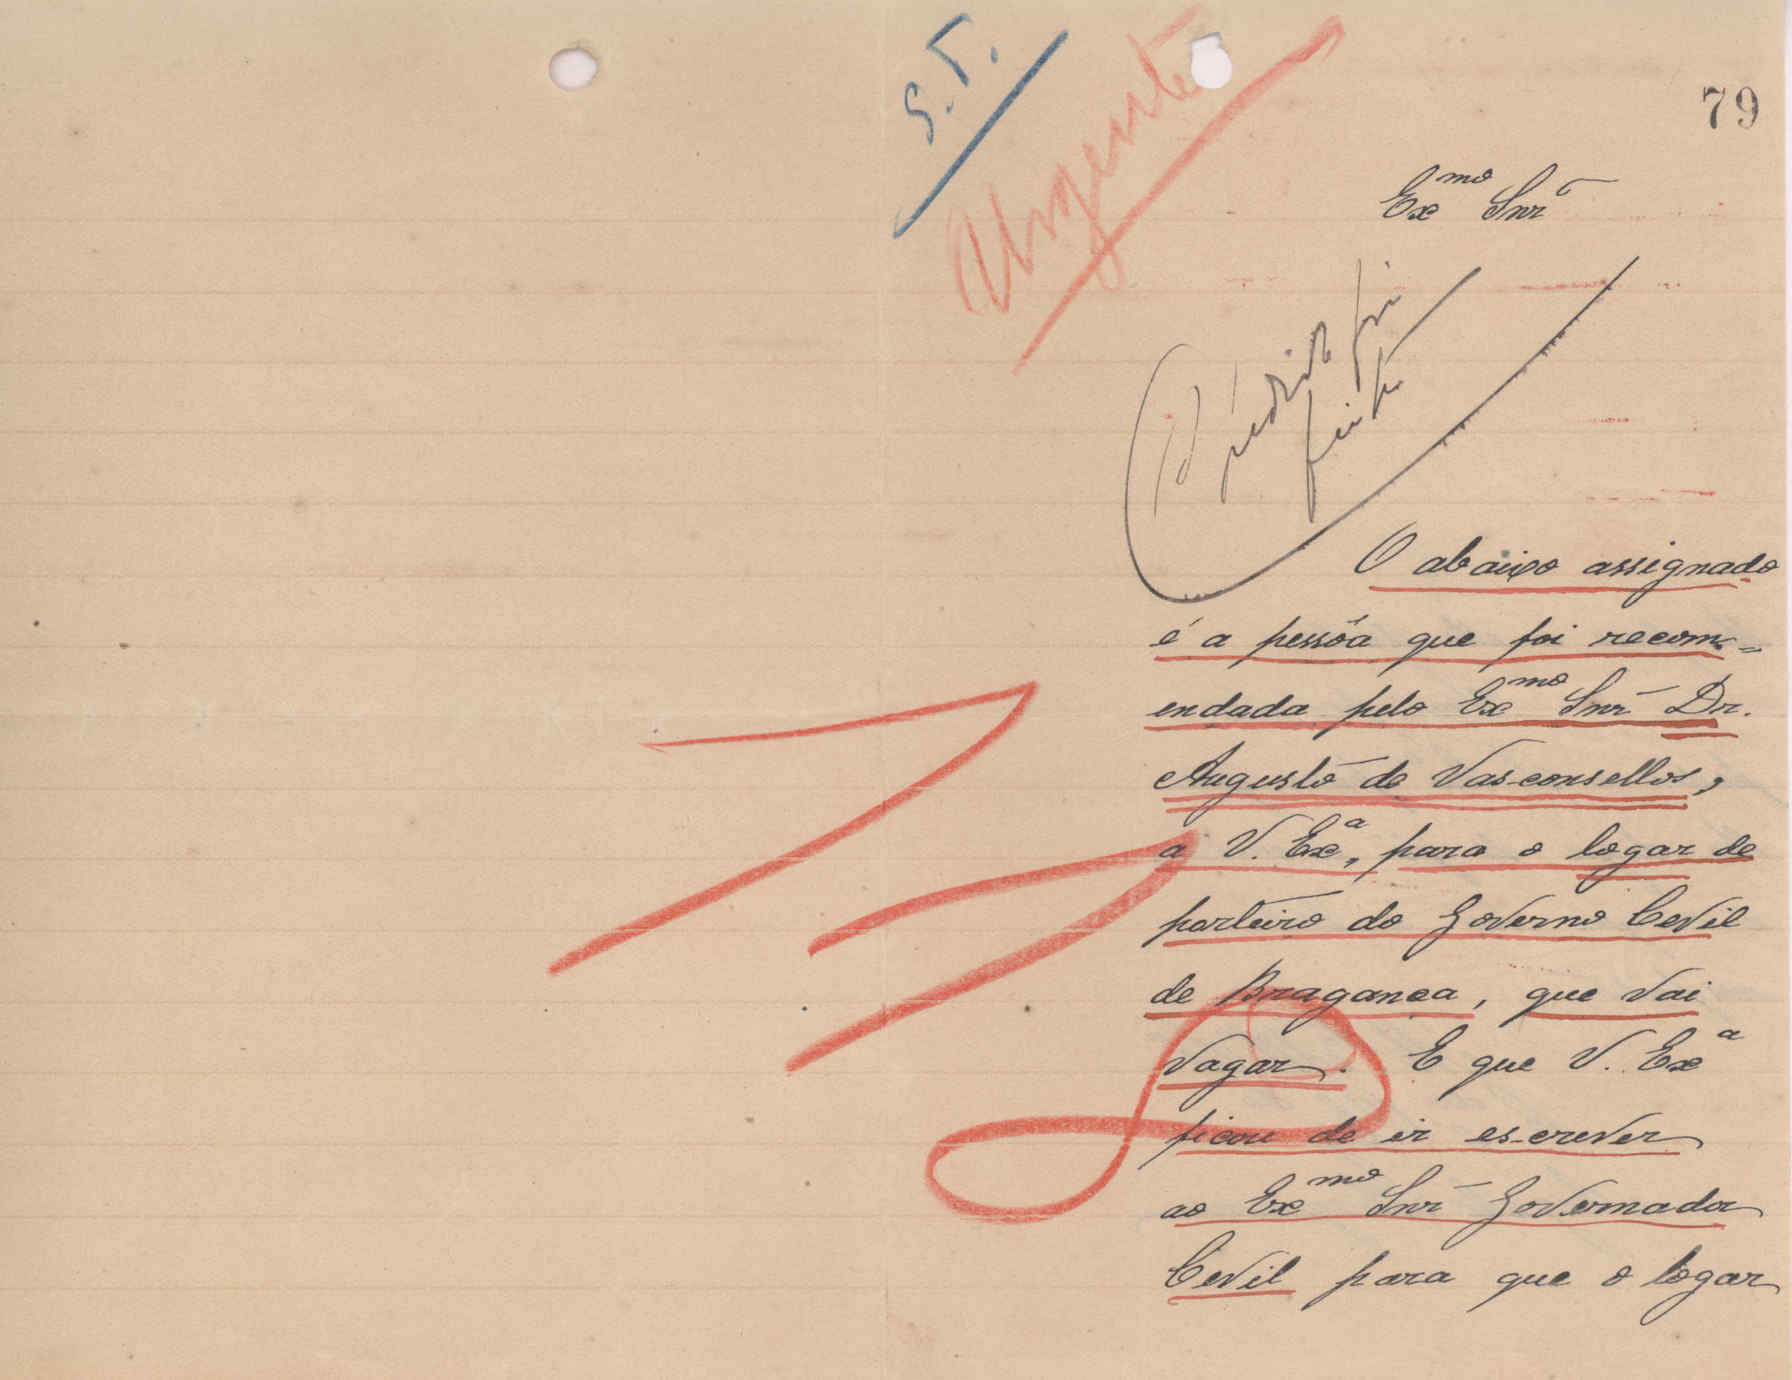 S. T.
Urgente
79
Exmo Snr
O pedido foi
feito
O abaixo assignado
é a pessôa que foi recom=
endada pelo Exmo Snr Dr.
Augusto de Vasconsellos,
a V. Exa, para o logar de
porteiro do Governo Cevil
de Braganca, que vai
vagar. E que V. Exa
ficou de ir escrever
ao Exmo Snr Governador
Cevil para que o logar